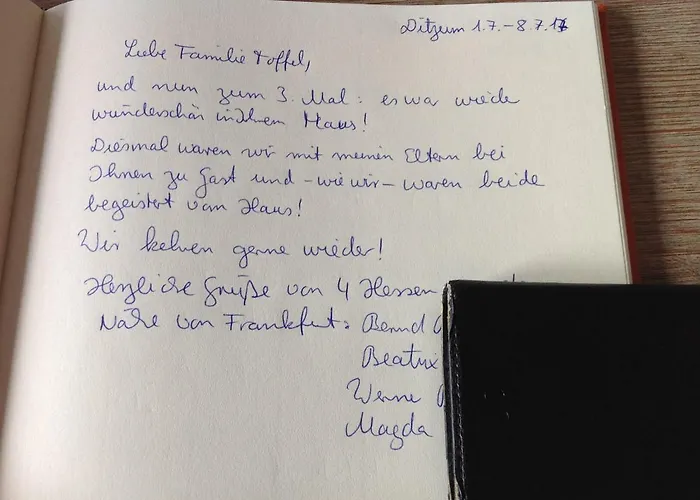 Ditzum 1.7.-8.7.17
Liebe Familie Toffel,
und nun zum 3. Mal: es war wieder
wunderschön in Ihrem Haus!
Diesmal waren wir mit meinen Eltern bei
Ihnen zu Gast und - wie wir - waren beide
begeistert vom Haus!
Wir kehren gerne wieder!
Herzliche Grüße von 4 Hessen
Nähe von Frankfurt: Bernd
Beatrix
Werner
Magda